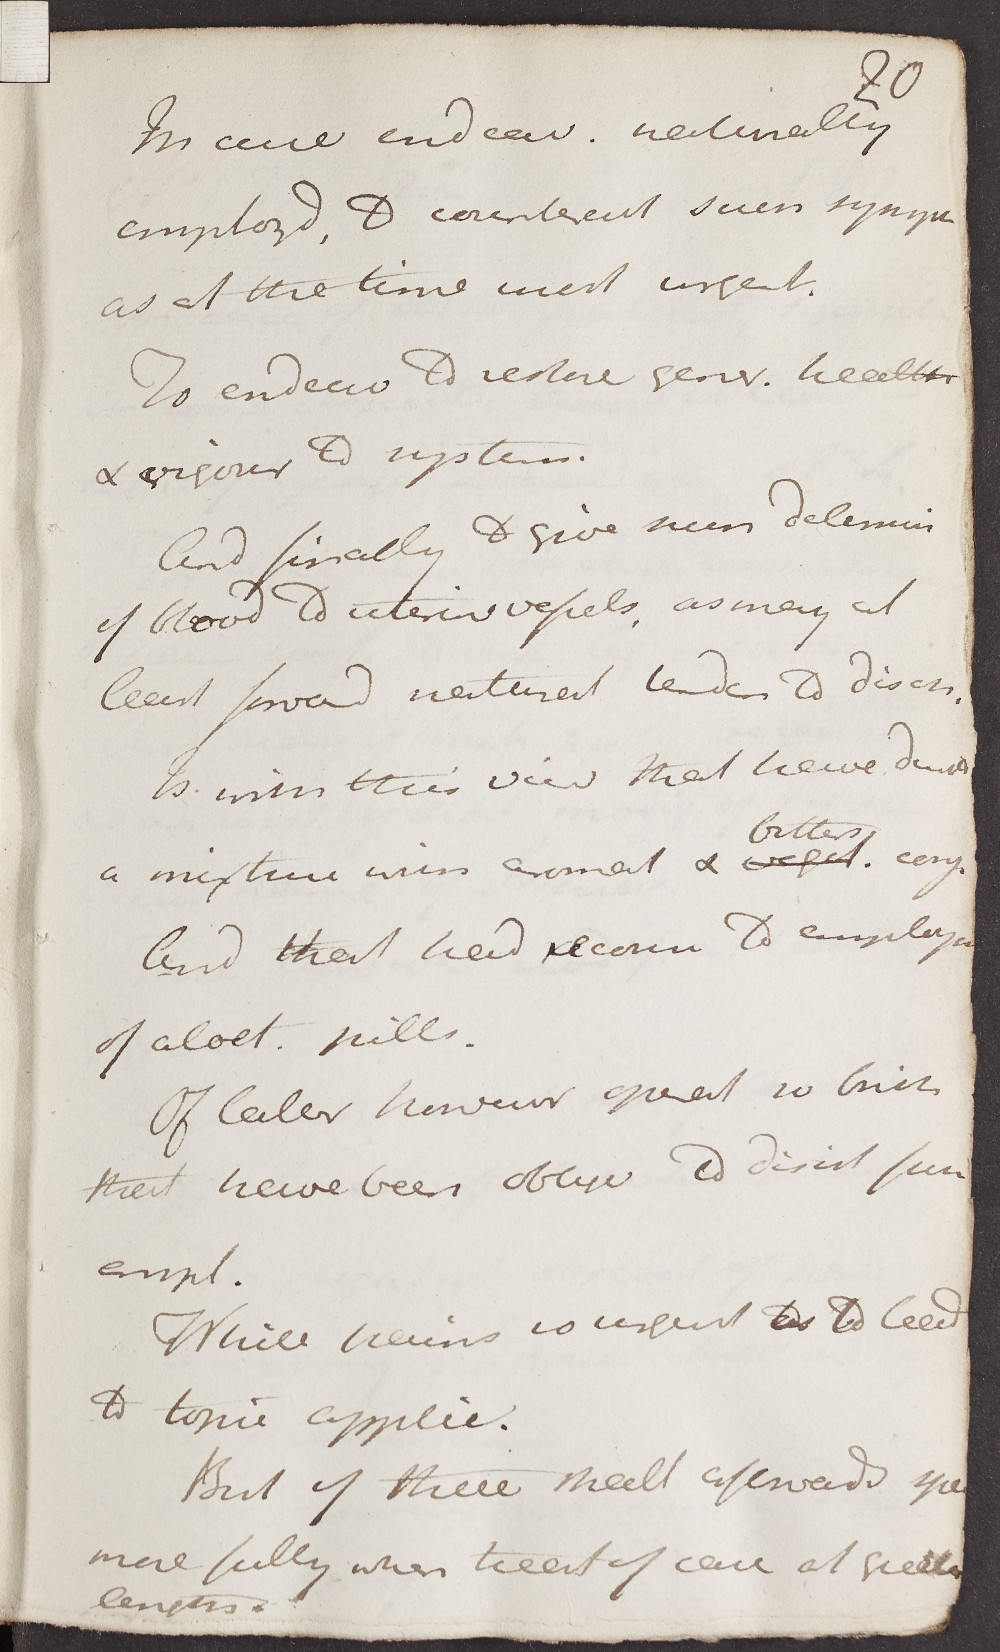 20
In cure endeav. naturally
employd, to counteract such symp
as at the time most urgent.
To endeav to restore gener. health
& vigour to system.
And finally to give such determin
of blood to uterin vessels, as may at
least forward natural tenden to disch.
Is with this view that have
a mixture with aromat & veget. comp.
bitters
And that had recour to employm
of aloet. pills.
Of later however operat so brisk
that have been oblige to desist from
empl.
While pains so urgent as to lead
to topic applic.
But of these shall afterwards spe
more fully when treat of case at greater
length.